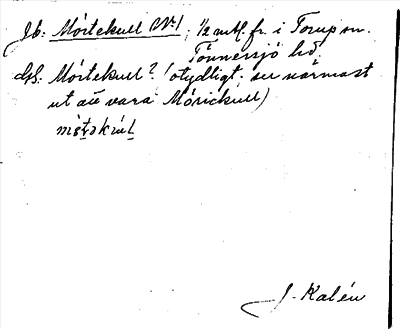 Jb: Mörtekull N:1, 1/2 mtl. fr. i Torup sn.
Tönnersjö hd.
GS: Mörtekull? (otydligt. ser närmast
ut att vara Mörickull)
J. Kalén